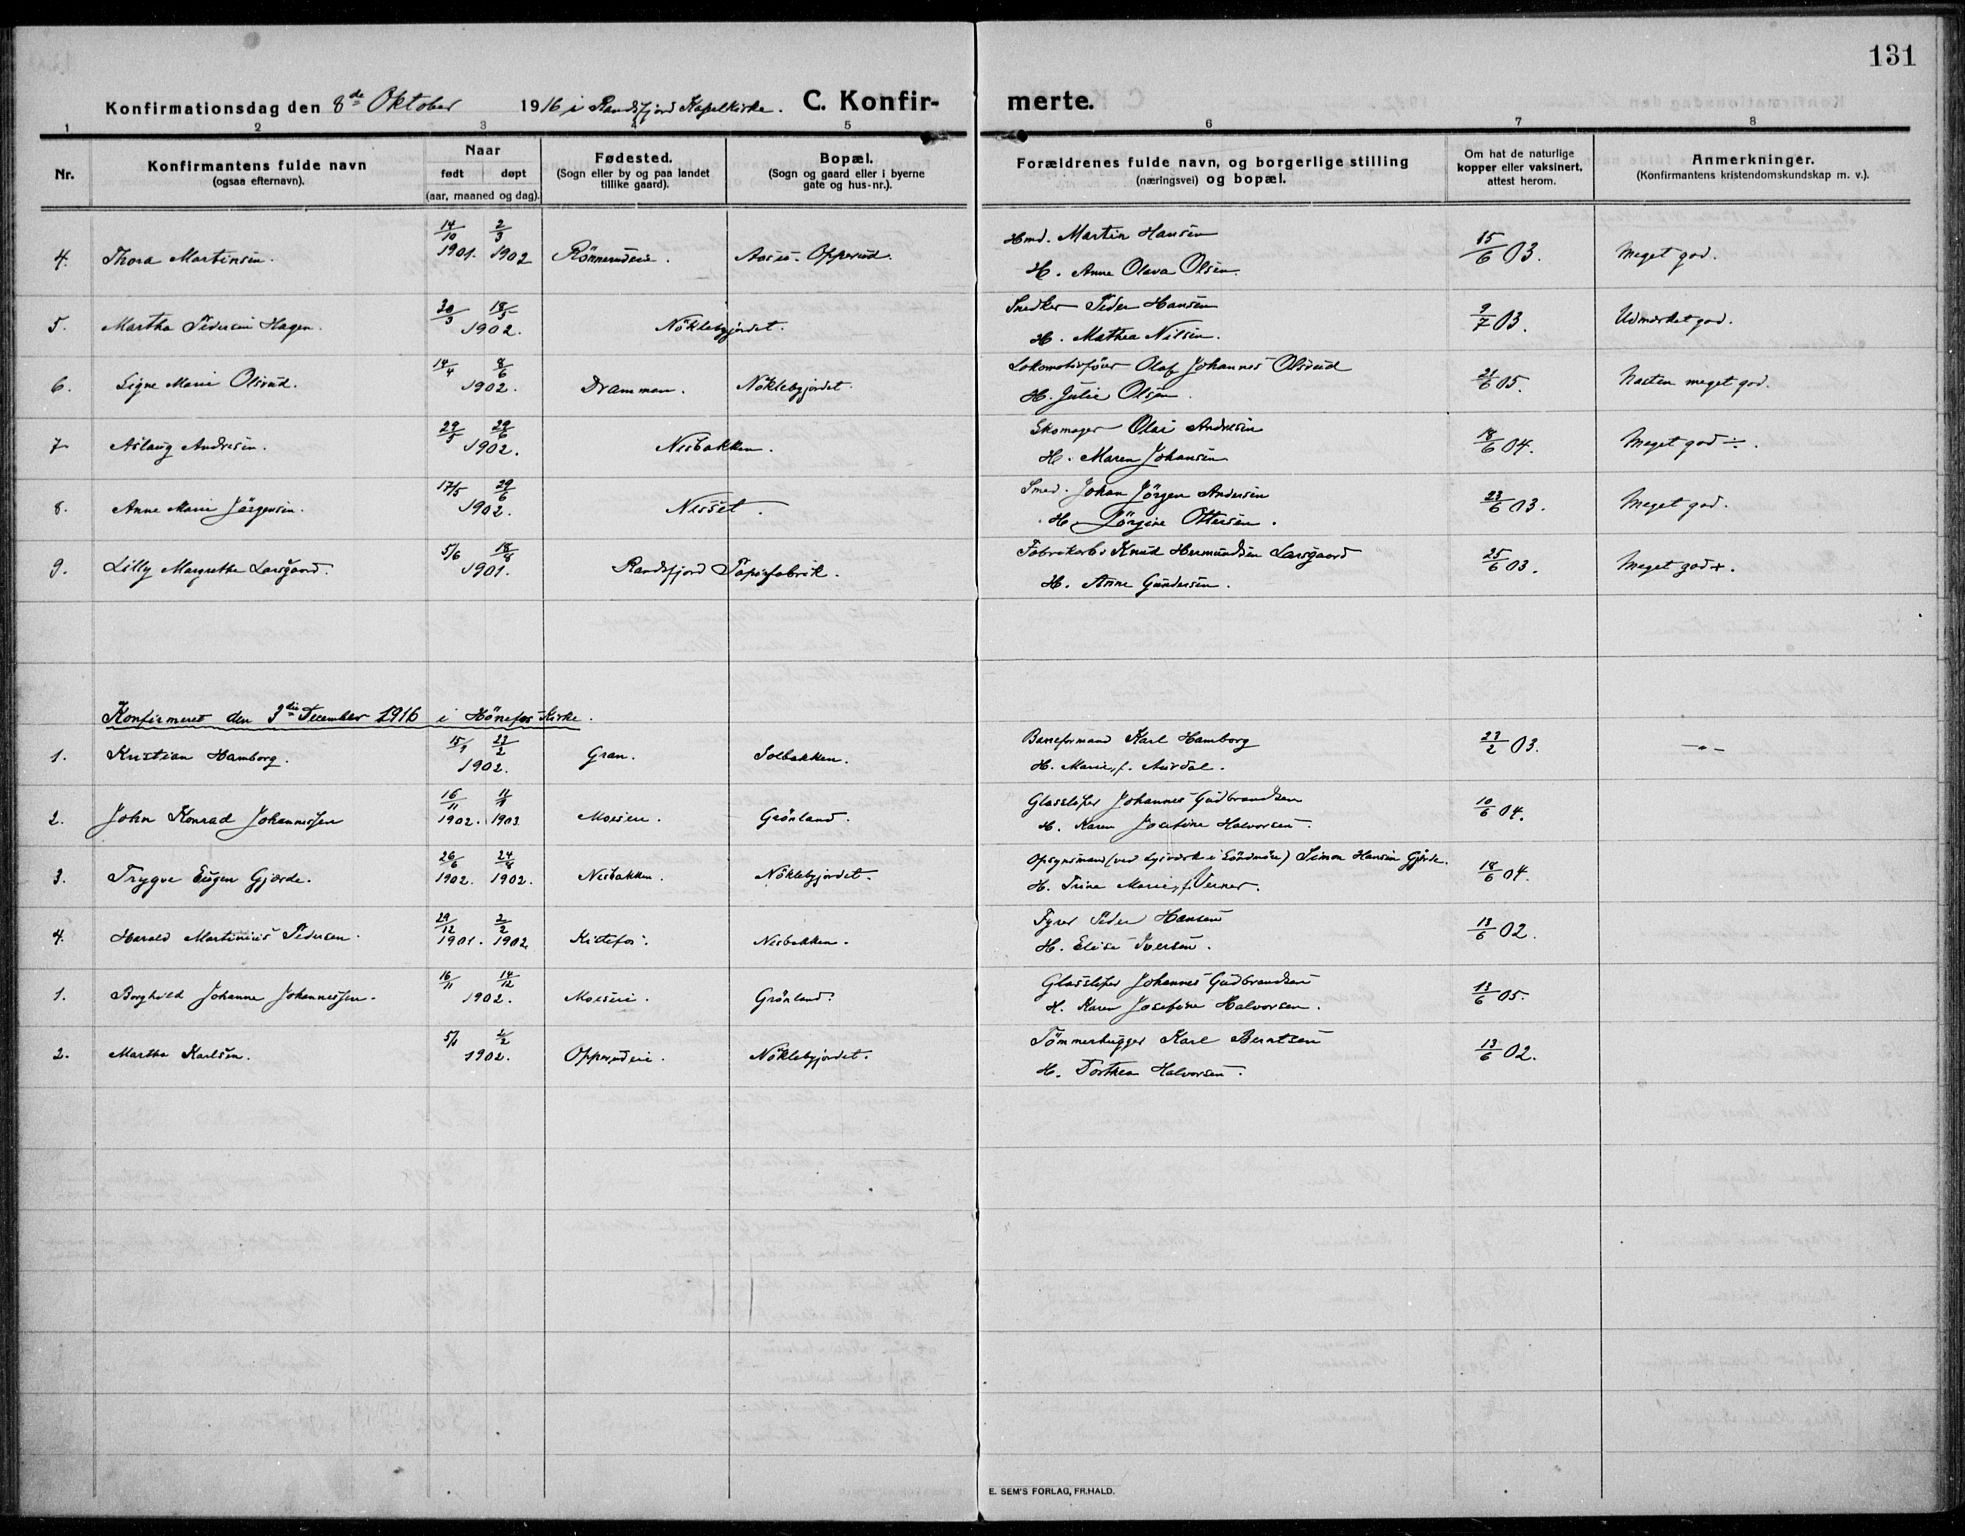 131
Konfirmationsdag den 8de Oktober 1916 i Randsfjord Kapelkirke. C. Konfirmerte.
1 2 3 4 5 6 7 8
Nr. Konfirmantens fulde navn (ogsaa efternavn). Naar født døpt (aar, maaned og dag). Fødested. (Sogn eller by og paa landet tillike gaard). Bopæl. (Sogn og gaard eller i byerne gate og hus-nr.). Forældrenes fulde navn, og borgerlige stilling (næringsvei) og bopæl. Om hat de naturlige kopper eller vaksinert, attest herom. Anmerkninger. (Konfirmantens kristendomskundskap m. v.).
4. Thora Martinsen. 14/10 1901. 2/3 1902 Rönnerudeie. Opperud. Hmd. Martin Hansen 15/6 03. Meget god.
H. Anne Olava Olsen.
5. Martha Pedersen Hagen. 30/3 18/5 1902. Nöklebyjordet. Snedker Peder Hansen 9/7 03. Udmerket god.
H. Mathea Nilsen.
6. Signe Marie Olsrud. 14/4 8/6 1902. Drammen. Nöklebyjordet. Lokomotivfører Olaf Johannes Olsrud 21/6 05. Næsten meget god.
H. Julie Olsen.
7. Aslaug Andresen. 29/5 29/6 1902. Nesbakken. Skomager Olai Andresen 18/6 04. Meget god ÷.
H. Maren Johansen
8. Anne Marie Jörgensen. 17/5 29/6 1902. Nesset. Smed. Johan Jörgen Andersen 23/6 03. Meget god.
H. Jörgine Ottersen.
9. Lilly Margrethe Larsgaard. 5/6 18/8 1901. Randsfjord Papirfabrik. Fabrikarb. Knud Hermundsen Larsgaard 25/6 03. Meget god +.
H. Anne Gundersen.
Konfirmeret den 3die December 1916 i Hönefos Kirke.
1. Kristian Hamborg. 15/1 23/2 1902. Gran. Solbakken. Baseformand Karl Hamborg 23/2 03. -"-
H. Marie, f. Aurdal.
2. John Konrad Johannessen 16/11 1902. 11/1 1903 Moseie. Grönland. Glassliper Johannes Gudbrandsen 10/6 04.
H. Karen Josefine Halvorsen.
3. Trygve Eugen Gjærde. 26/6 1902. 24/8 1902. Nesbakken. Nöklebyjordet. Opsynsmand (ved i Söndmöre) Simon Hansen Gjærde. 18/6 04.
H. Trine Marie, f. Verner.
4. Harald Martinius Pedersen. 29/12 1901. 2/2 1902. Kistefos. Nesbakken. Fyrer Peder Hansen 13/6 02.
H. Elise Iversen.
1. Borghild Johanne Johannessen. 16/11 14/12 1902. Moseie. Grönland. Glassliper Johannes Gudbrandsen 13/6 05.
H. Karen Josefine Halvorsen.
2. Martha Karlsen. 5/1 2/2 1902. Opperudeie. Nöklebyjordet. Tömmerhugger Karl Berntsen 13/6 02.
H. Dorthea Halvorsen.
E. SEM'S FORLAG, FR.HALD.